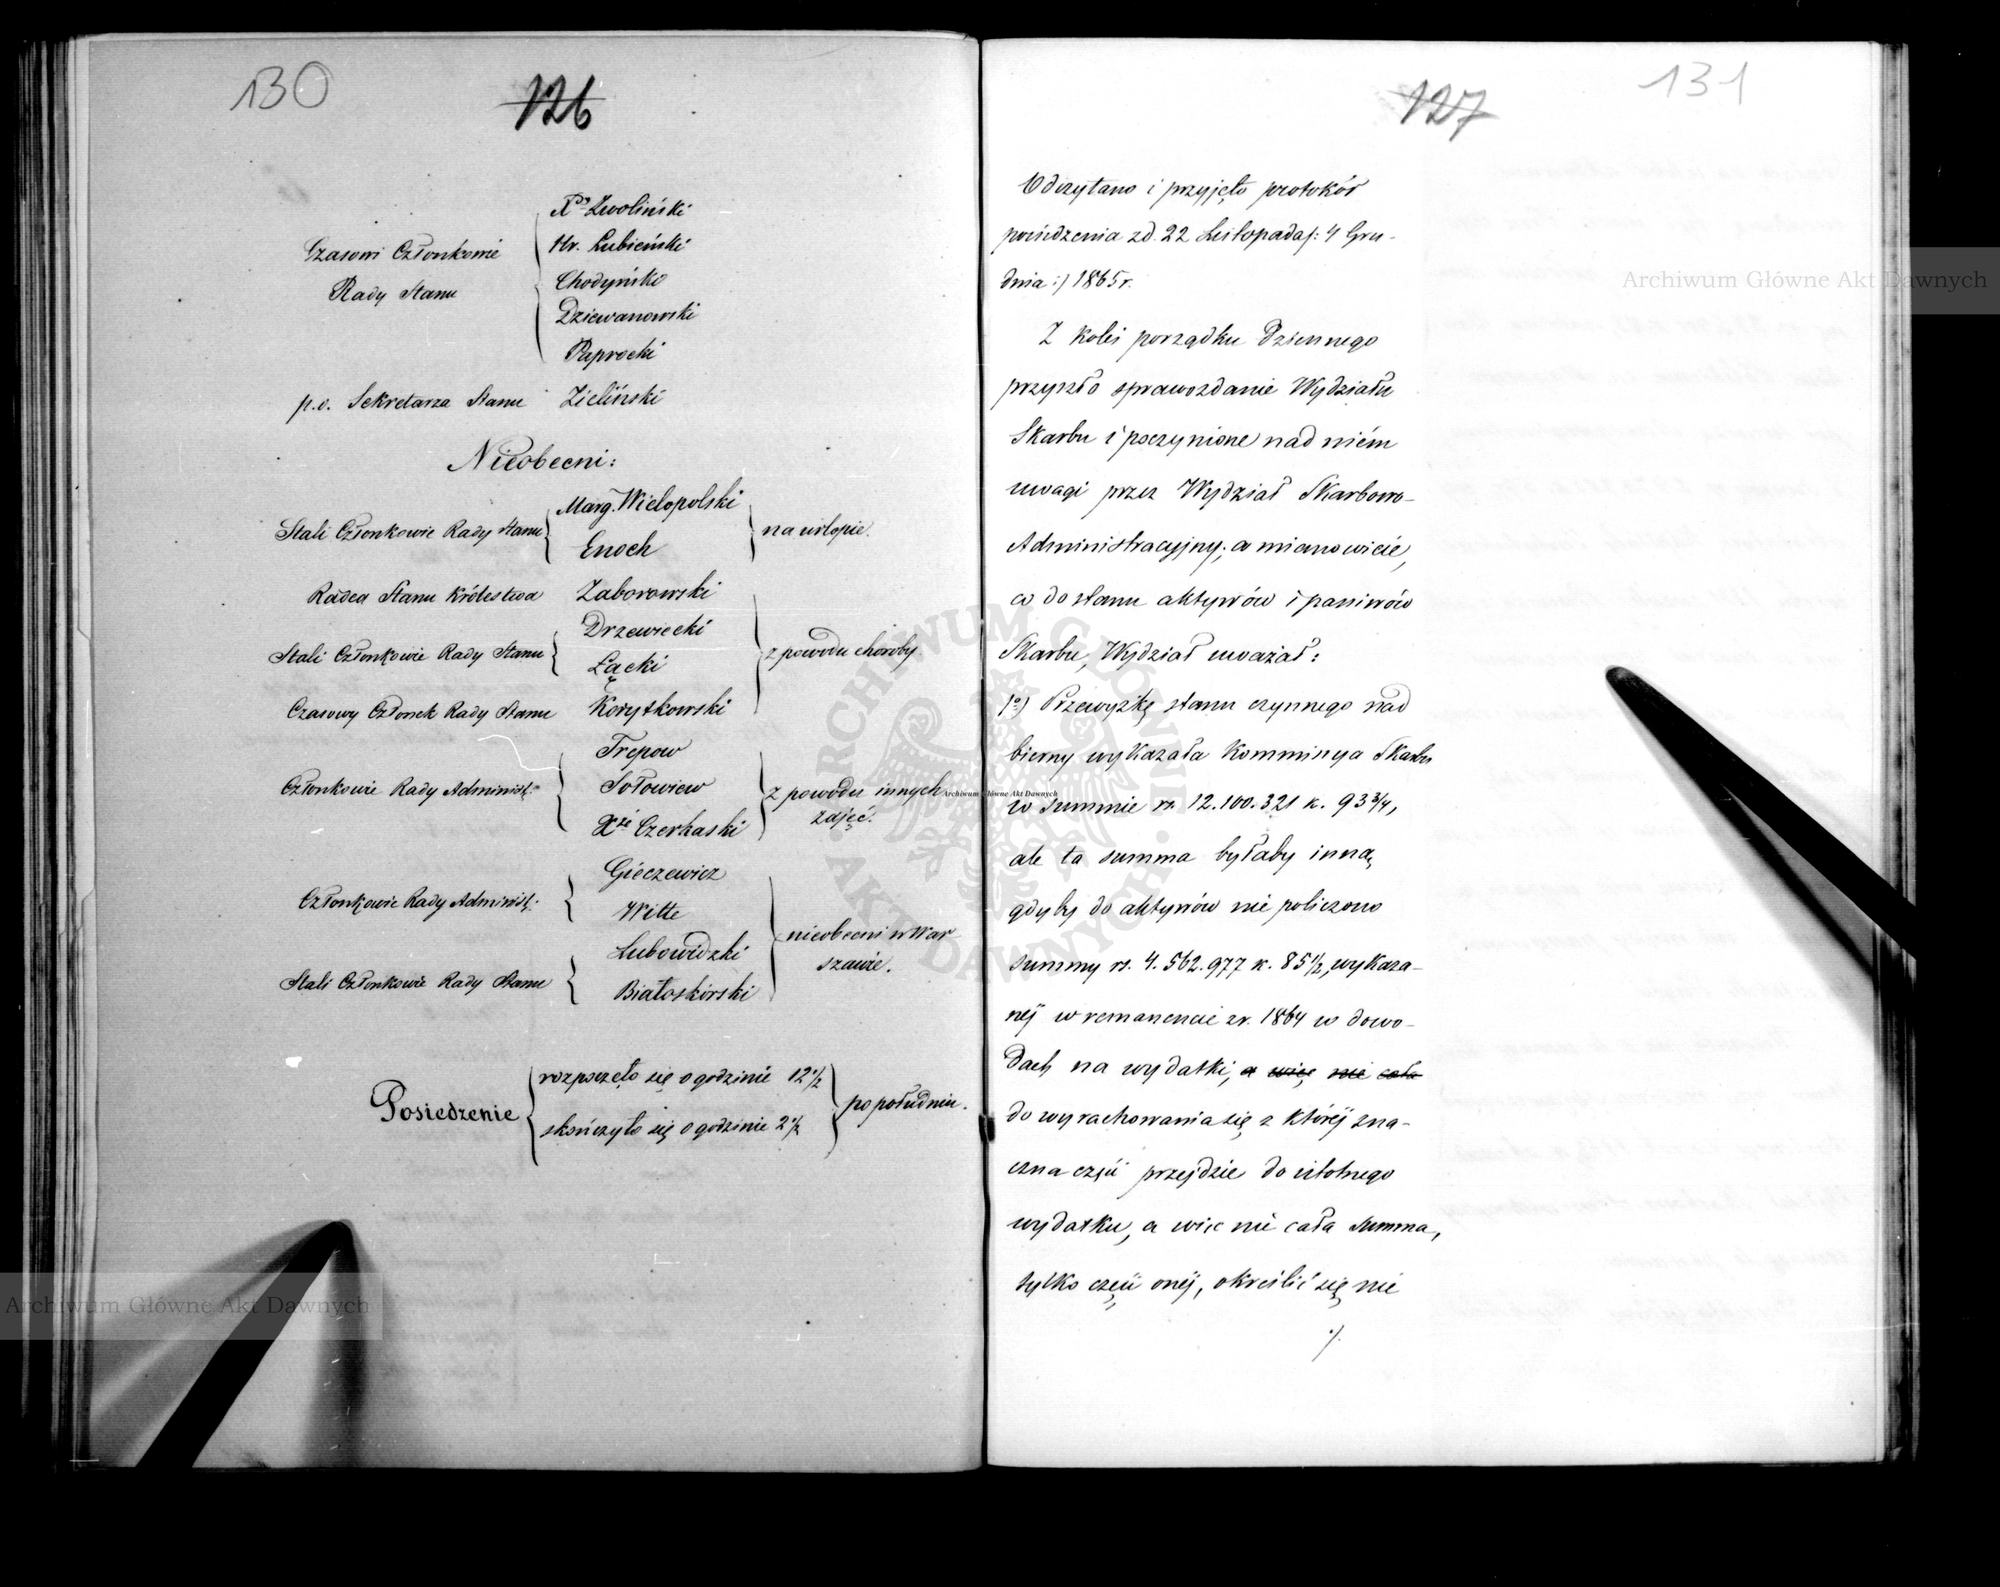 130
126
Czasowi Członkowie
Rady Stanu
Xs Zwoliński
Hr. Łubieński
Chodyński
Dziewanowski
Paprocki
p.o. Sekretarza Stanu Zieliński
Nieobecni:
Stali Członkowie Rady Stanu
Marg. Wielopolski
Enoch
na urlopie.
Radca Stanu Królestwa Zaborowski
Stali Członkowie Rady Stanu
Drzewiecki
Łącki
Czasowy Członek Rady Stanu Korytkowski
z powodu choroby
Członkowie Rady Administ:
Trepow
Sołowiew
Xże Czerkaski
z powodu innych
zajęć.
Członkowie Rady Administ:
Gieczewicz
Witte
Stali Członkowie Rady Stanu
Lubowidzki
Białoskórski
nieobecni w War
szawie.
Posiedzenie
rozpoczęło się o godzinie 12 1/2
skończyło się o godzinie 2 1/2
po południu.
131
127
Odczytano i przyjęto protokół
posiedzenia z d. 22 Listopada /: 4 Gru-
dnia :/ 1865 r.
Z kolei porządku dziennego
przyszło sprawozdanie Wydziału
Skarbu i poczynione nad niém
uwagi przez Wydział Skarbowo-
Administracyjny; a mianowicie,
co do stanu aktywów i passiwów
Skarbu, Wydział uważał:
1o) Przewyżkę stanu czynnego nad
bierny wykazała Kommissya Skarbu
w summie rs. 12.100.321 k. 93 3/4,
ale ta summa byłaby inną,
gdyby do aktywów nie policzono
summy rs. 4.562.977 k. 85 1/2, wykaza-
néj w remanencie z r. 1864 w dowo-
dach na wydatki, a więc nie cała
do wyrachowania się z któréj zna-
czna część przejdzie do istotnego
wydatku, a więc nie cała summa,
tylko część onéj, określić się nie
./.
Archiwum Główne Akt Dawnych
Archiwum Główne Akt Dawnych
Archiwum Główne Akt Dawnych
ARCHIWUM GŁÓWNE · AKT DAWNYCH ·